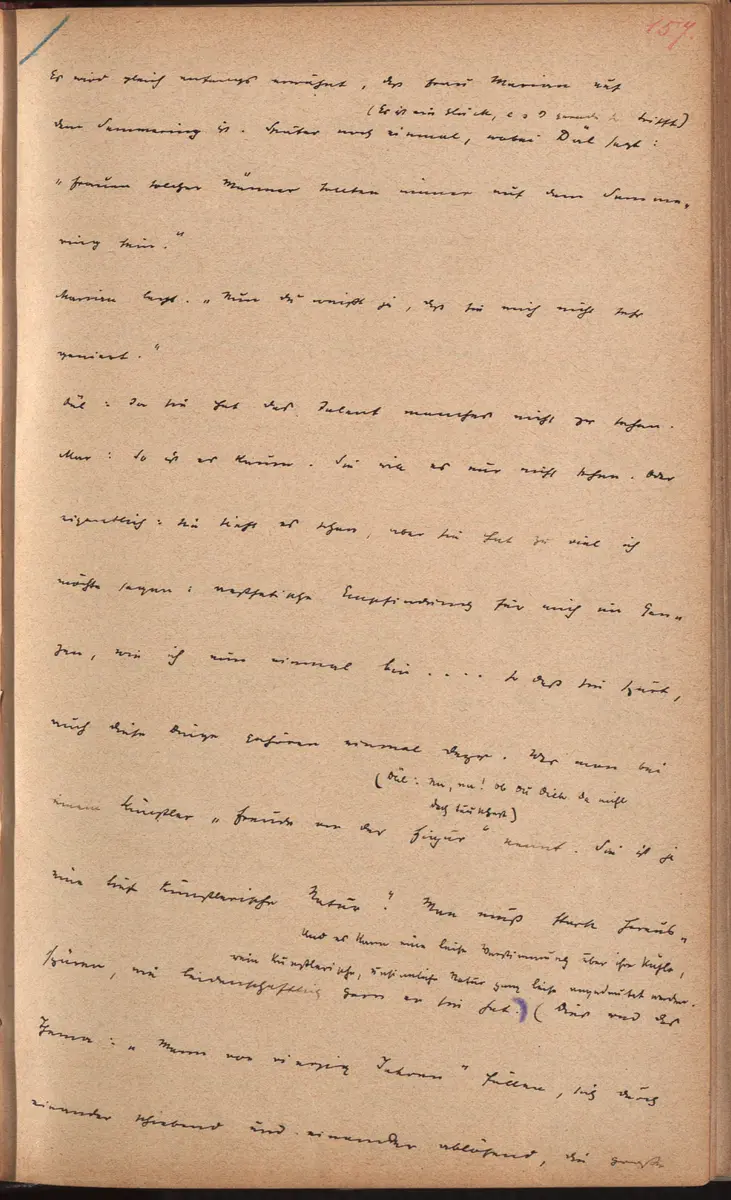 157.
Es wird gleich anfangs erwähnt, daß Frau Marian auf
(Es ist ein Glück, gerade trifft)
dem Semmering ist. Später noch einmal, wobei Däl sagt:
„Frauen solcher Männer sollten immer auf dem Semme-
ring sein."
Marian lacht. „Nun du weißt ja, daß sie mich nicht sehr
geniert."
Däl: Ja sie hat das Talent manches nicht zu sehen.
Mar: So ist es kaum. Sie will es nur nicht sehen. Oder
eigentlich: sie sieht es schon, aber sie hat zu viel ich
möchte sagen: aesthetische Empfindung für mich im Gan-
zen, wie ich nun einmal bin .... so daß sie spürt,
auch diese Dinge gehören einmal dazu. Was man bei
(Däl: Na, na! ob du dich da nicht
doch täuschest)
einem Künstler „Freude an der Figur" nennt. Sie ist ja
eine tief künstlerische Natur." Man muß stark heraus-
Und es kann eine leise Verstimmung über ihre kühle,
rein künstlerische, unsinnliche Natur ganz leise angedeutet werden.
spüren, wie leidenschaftlich gern er sie hat.) (Dies und das
Thema: „Mann von vierzig Jahren" füllen, sich durch
einander schiebend und einander ablösend, die große